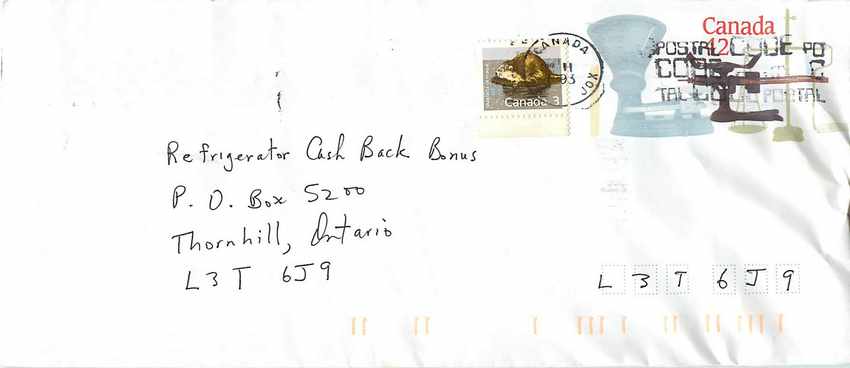 Canada
42
CANADA
93
J0X
POSTAL CODE PO
CODE
TAL CODE POSTAL
Canada 3
Refrigerator Cash Back Bonus
P. O. Box 5200
Thornhill, Ontario
L3T 6J9
L 3 T 6 J 9